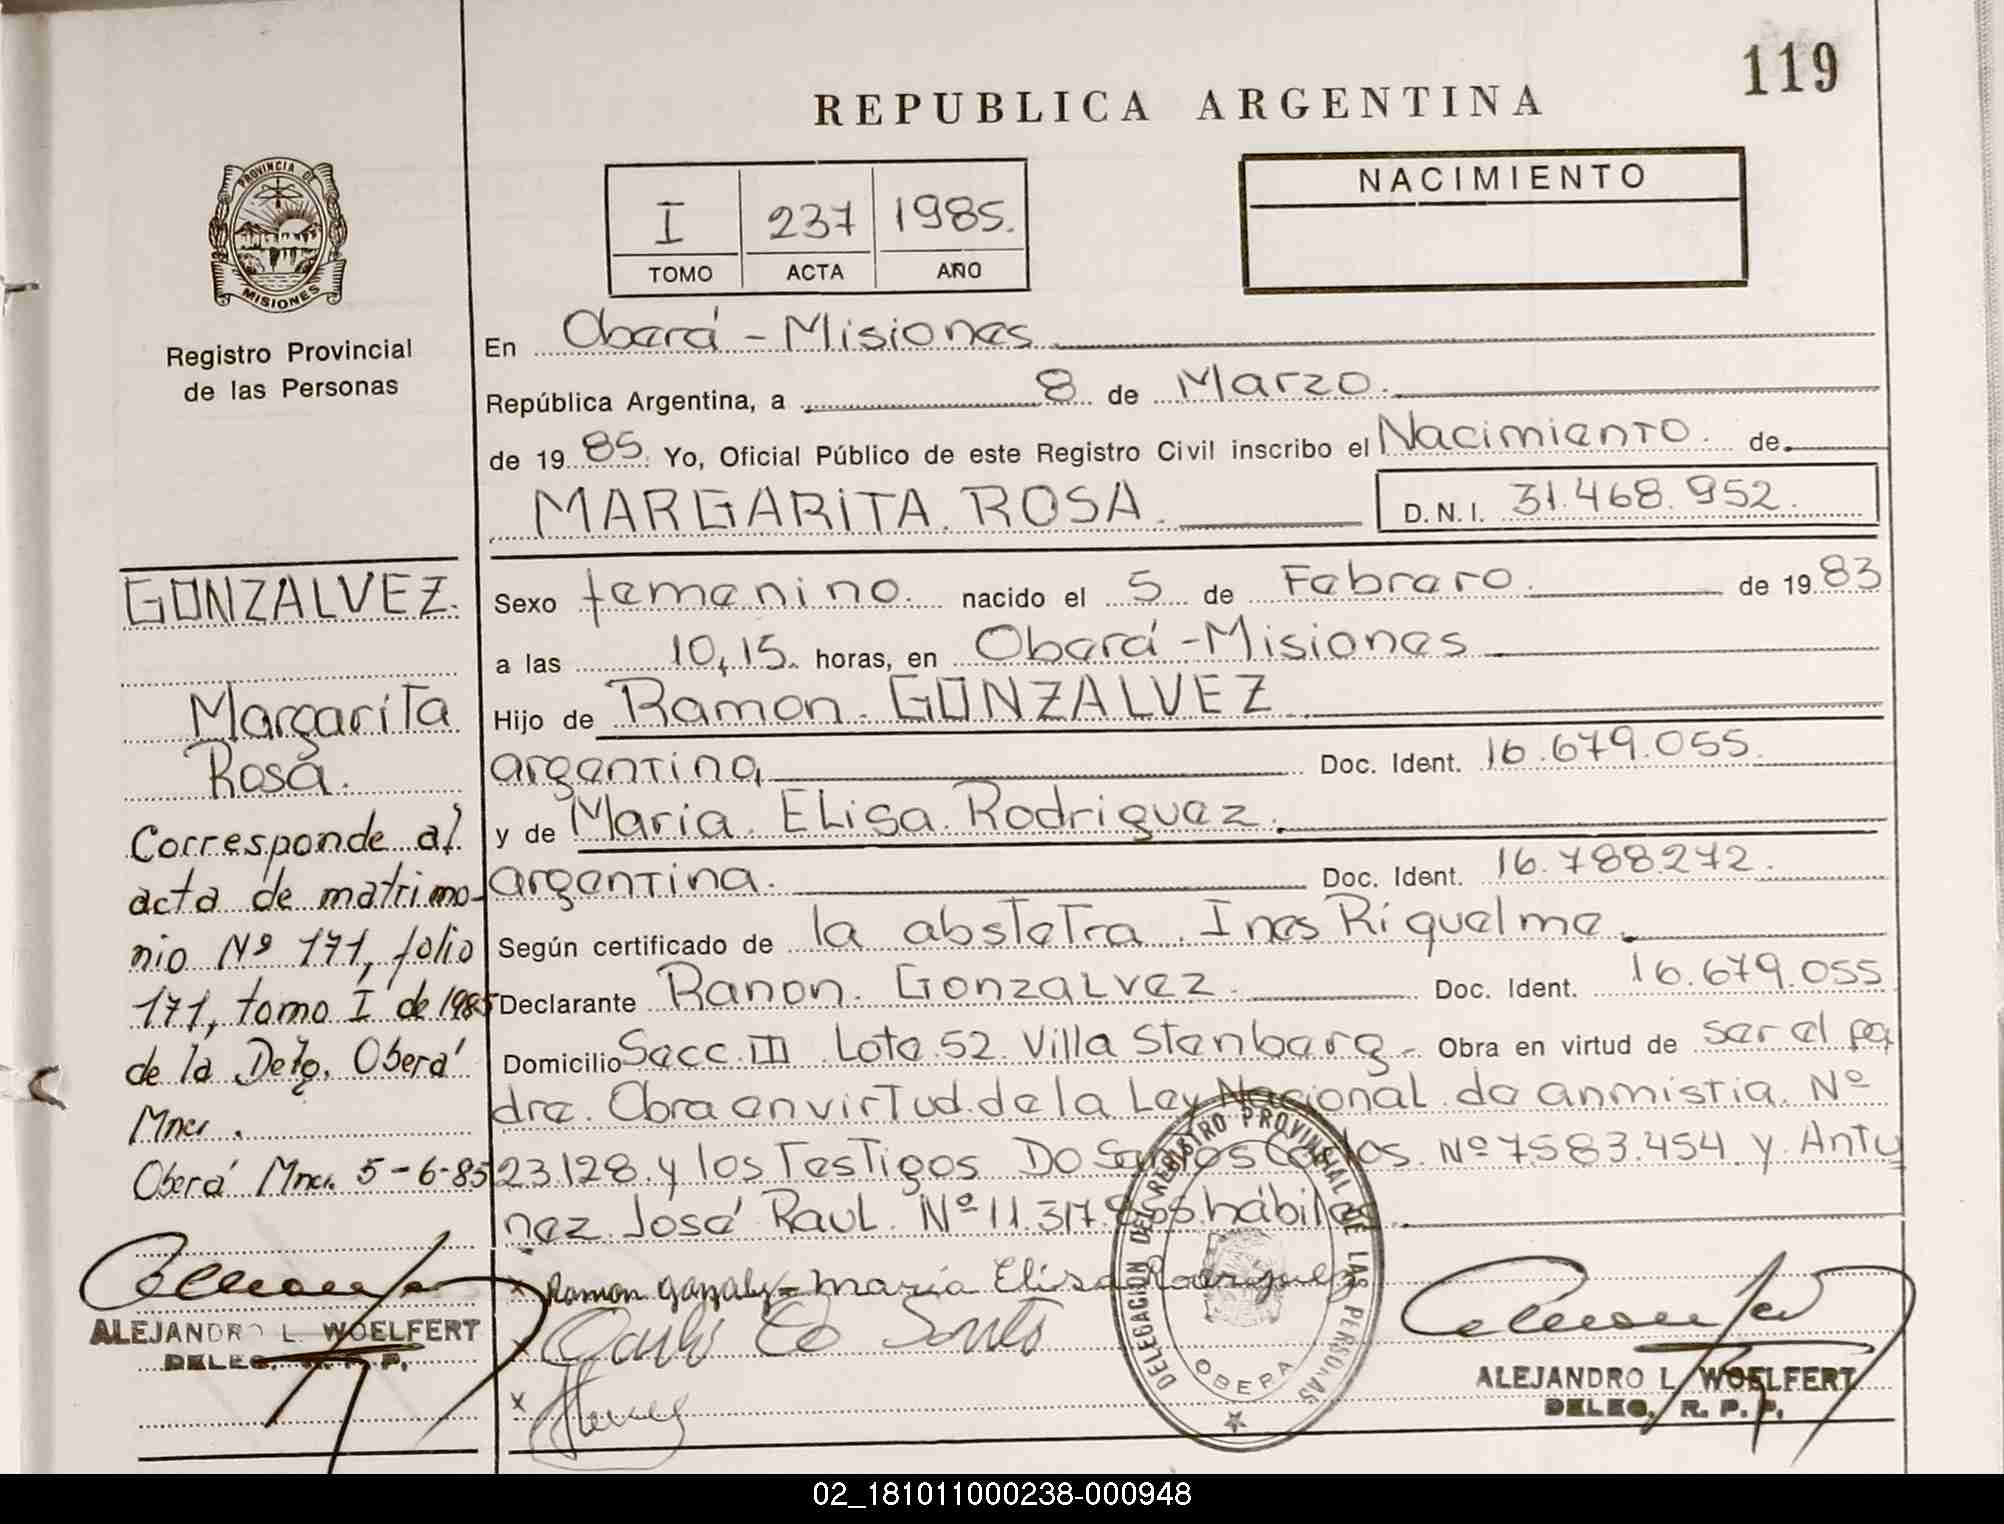 119
REPUBLICA ARGENTINA
PROVINCIA DE
MISIONES
Registro Provincial
de las Personas
I 237 1985.
TOMO ACTA AÑO
NACIMIENTO
En Oberá - Misiones
República Argentina, a 8 de Marzo.
de 19 85. Yo, Oficial Público de este Registro Civil inscribo el Nacimiento. de
MARGARITA. ROSA. D.N.I. 31.468.952.
GONZALVEZ.
Margarita
Rosa.
Corresponde al
acta de matrimo-
nio Nº 171, folio
171, tomo I de 1985
de la Deleg. Oberá
Mnes.
Oberá Mnes. 5-6-85
ALEJANDRO L. WOELFERT
DELEG. R. P. P.
Sexo femenino. nacido el 5 de Febrero. de 19 83
a las 10,15. horas, en Oberá - Misiones
Hijo de Ramon. GONZALVEZ
argentino, Doc. Ident. 16.679.055.
y de Maria. Elisa. Rodriguez.
argentina. Doc. Ident. 16.788.272.
Según certificado de la obstetra. Ines Riquelme.
Declarante Ranon. Gonzalvez. Doc. Ident. 16.679.055
Domicilio Secc. III Lote. 52. Villa Stenberg - Obra en virtud de ser el pa
dre. Obra en virtud. de la Ley Nacional. de anmistia. Nº
23.128. y los testigos Do Santos Carlos. Nº 7.583.454. y. Antu
nez. José Raul. Nº 11.317. hábiles.
x Ramon gonzalez = maria Elisa Rodriguez
x
x
DELEGACION DEL REGISTRO PROVINCIAL DE LAS PERSONAS
OBERA
ALEJANDRO L. WOELFERT
DELEG. R. P. P.
02_181011000238-000948